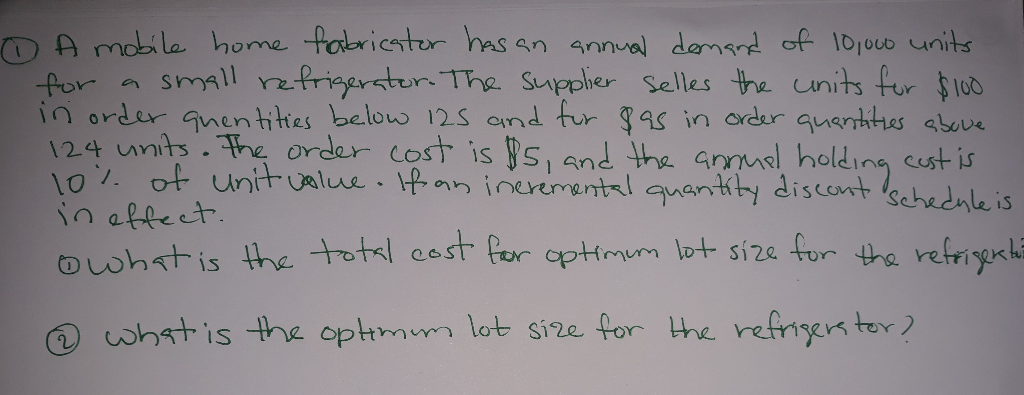 ① A mobile home fabricator has an annual demand of 10,000 units
for a small refrigerator. The supplier selles the units for $100
in order quentities below 125 and for $95 in order quantities above
124 units. The order cost is $5, and the annual holding cost is
10% of unit value. If an incremental quantity discont schedule is
in effect.
① what is the total cost for optimum lot size for the refrigerator
② what is the optimum lot size for the refrigerator?